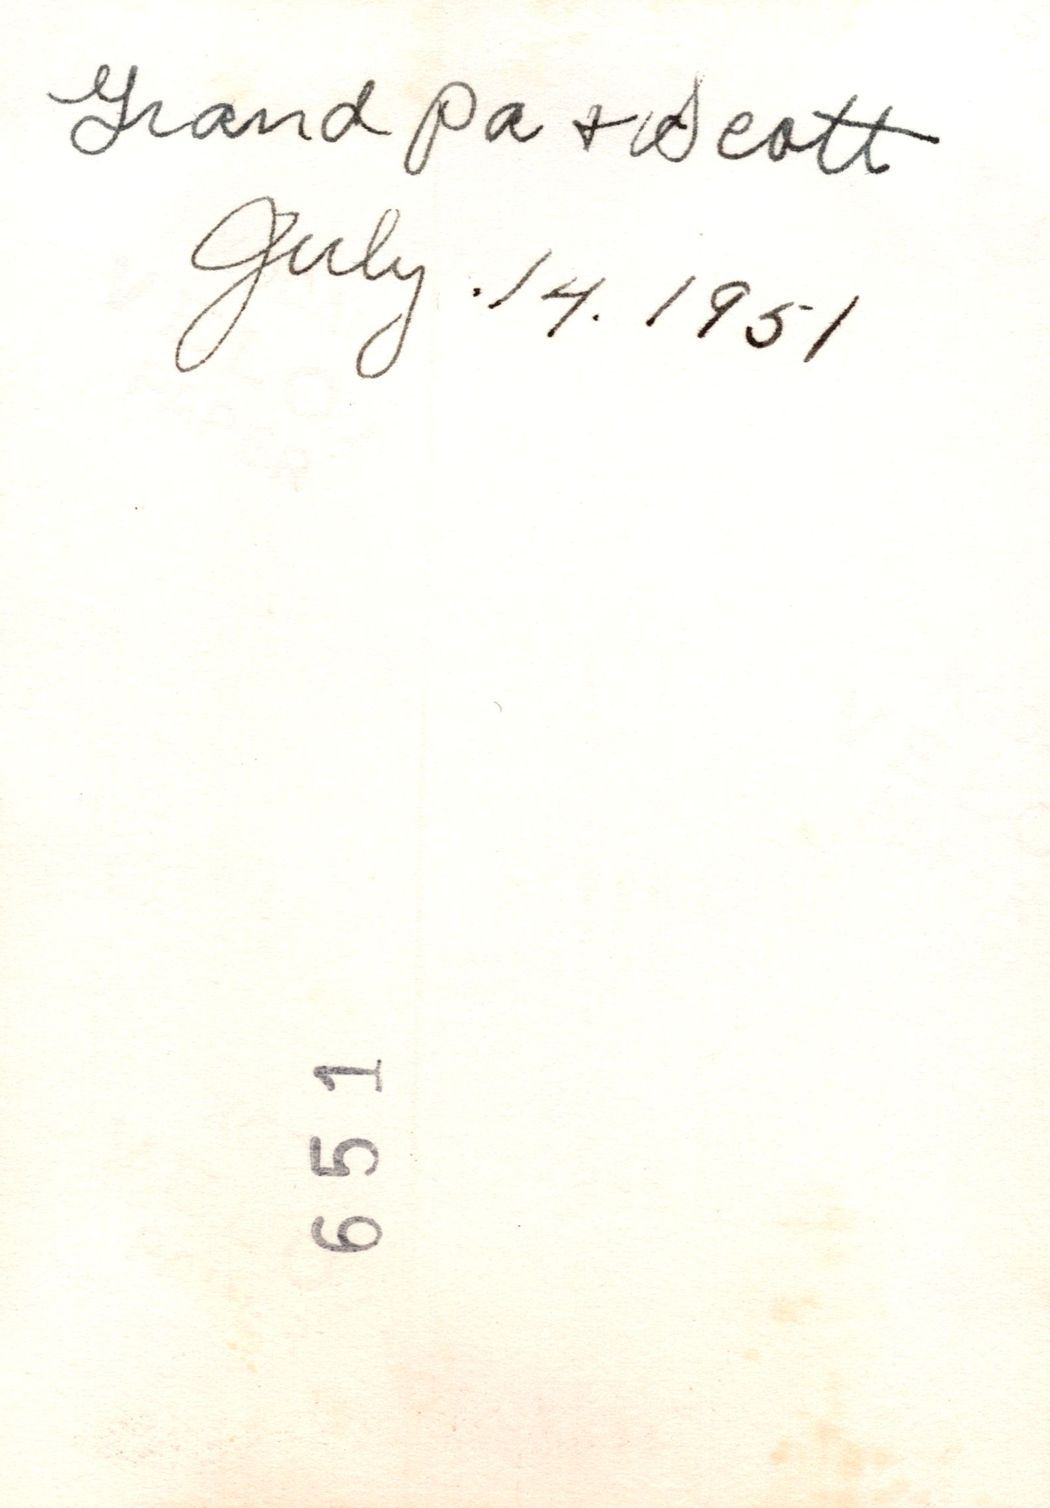 Grand Pa & Scott
July . 14. 1951
651